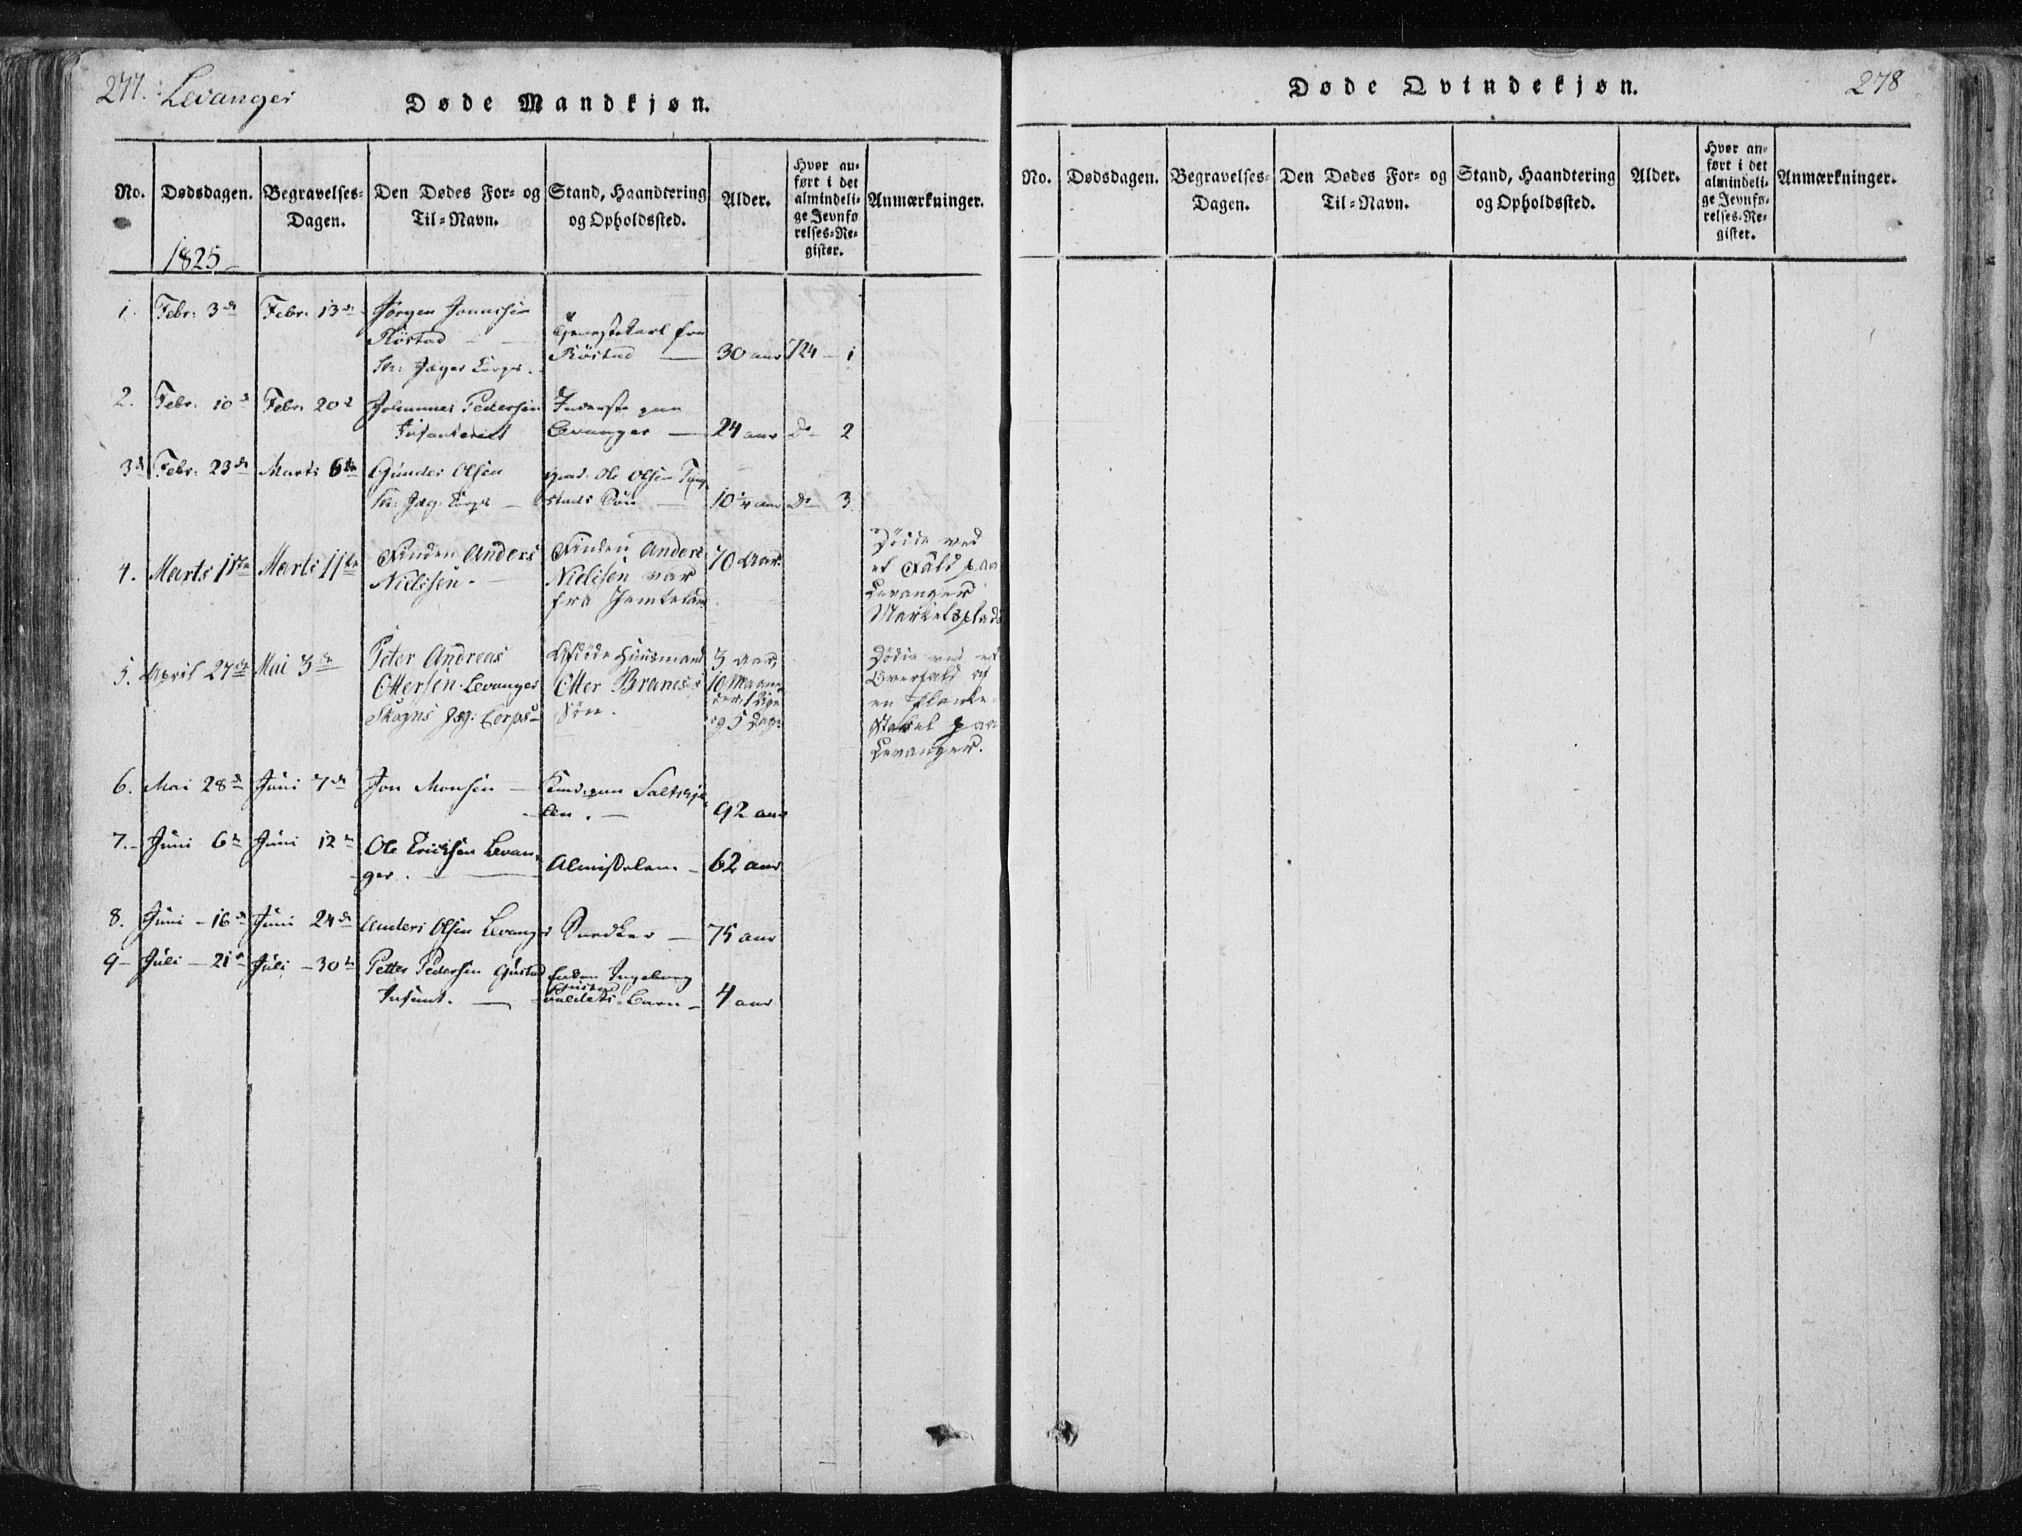 277. Levanger
Døde Mandkjøn.
No.
Dødsdagen.
Begravelses-
Dagen.
Den Dødes For- og
Til-Navn.
Stand, Haandtering
og Opholdssted.
Alder.
Hvor an-
ført i det
almindeli-
ge Jevnfø
relses-Re-
gister.
Anmærkninger.
1825
1. Febr. 3de Febr. 13de Jørgen
Röstad
Röstad 30 aar 724 - 1
Jæger Corps.
2. Febr. 10de Febr. 20de Johannes Pedersen
Levanger 24 aar Do 2
3 Febr. 23de Marts 6te Gunder Olsen Ole Olsen
Jæg. Corps Sön 10 1/4 aar Do 3
4. Marts 1ste Marts 11te Finden Anders
Nielsen.
Finden Anders
Nielsen var
fra Jemteland
70 Aar.
Døde ved
et Fald paa
Levanger
Markedsplads
5. April 27de Mai 3de Peter Andreas
Ottersen Levanger
Skogns Jæg: Corps
Afdöde Huusmand
Otter Branes's
Sön.
3 Aar,
10 Maane
der, 1 Uge
og 5 Dage
Døde ved et
Overfald af
en Planke
Stabel paa
Levanger.
6. Mai 28de Juni 7de Jon Monsen
92 aar
7. Juni 6te Juni 12te Ole Ericksen Levan-
ger. Almisselem 62 aar
8. Juni 16de Juni 24de Anders Olsen Levanger Snedker 75 aar
9 Juli 21de Juli 30te Petter Pedersen Gustad Enken Ingeborg
Gustad
Barn 4 aar
Døde Qvindekjøn.
278
No.
Dødsdagen.
Begravelses-
Dagen.
Den Dødes For- og
Til-Navn.
Stand, Haandtering
og Opholdssted.
Alder.
Hvor an-
ført i det
almindeli-
ge Jevnfø-
relses-Re-
gister.
Anmærkninger.